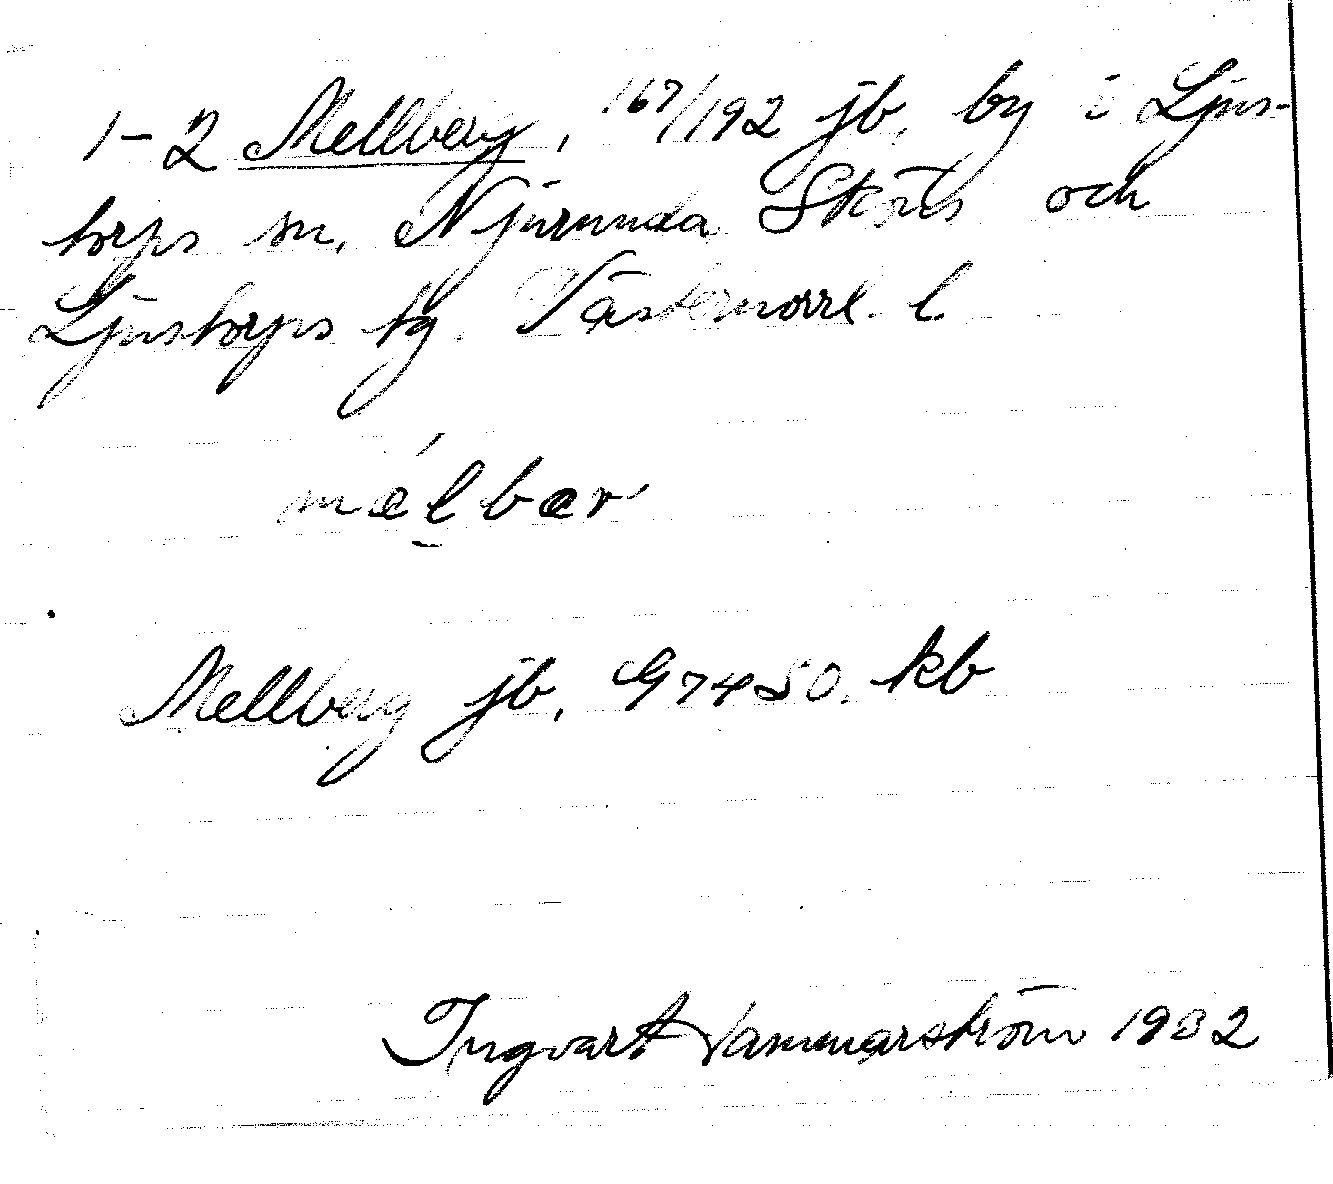 1-2 Mellberg, 167/192 jb, by i Ljus-
torps sn. Njurunda Sköns och
Ljustorps tg. Västernorrl. l
mǽlbær
Mellberg jb, G7450. kb
Ingvart Vammarström 1932